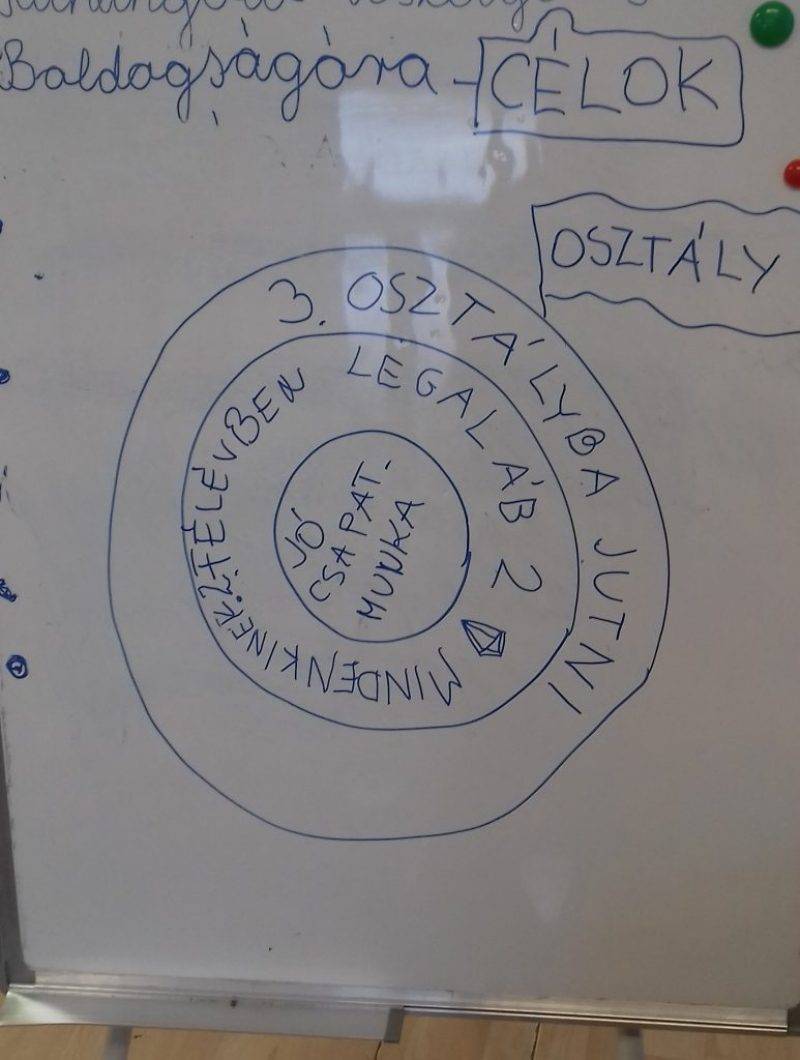 Boldogságóra - CÉLOK
OSZTÁLY
3. OSZTÁLYBA JUTNI
LEGALÁB 2
MINDENKINEK 2. FÉLÉVBEN
JÓ
CSAPAT-
MUNKA